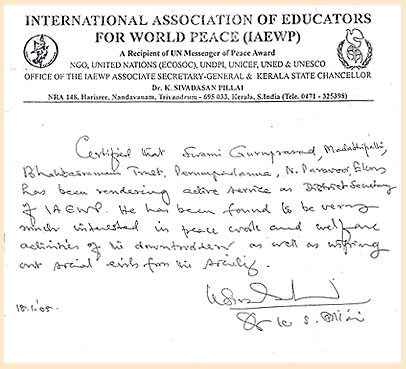 INTERNATIONAL ASSOCIATION OF EDUCATORS
FOR WORLD PEACE (IAEWP)
A Recipient of UN Messenger of Peace Award
NGO, UNITED NATIONS (ECOSOC), UNDPI, UNICEF, UNED & UNESCO
OFFICE OF THE IAEWP ASSOCIATE SECRETARY-GENERAL & KERALA STATE CHANCELLOR
Dr. K. SIVADASAN PILLAI
NRA 148, Harisree, Nandavanam, Trivandrum - 695 033, Kerala, S.India (Tele. 0471 - 325398)
Certified that Swami Guruprasad,
Trust, N. Paravoor,
has been rendering active service as District Secretary
of IAEWP. He has been found to be very
much interested in peace work and welfare
activities of the downtrodden as well as wiping
out social evils from the society.
Dr K S Pillai